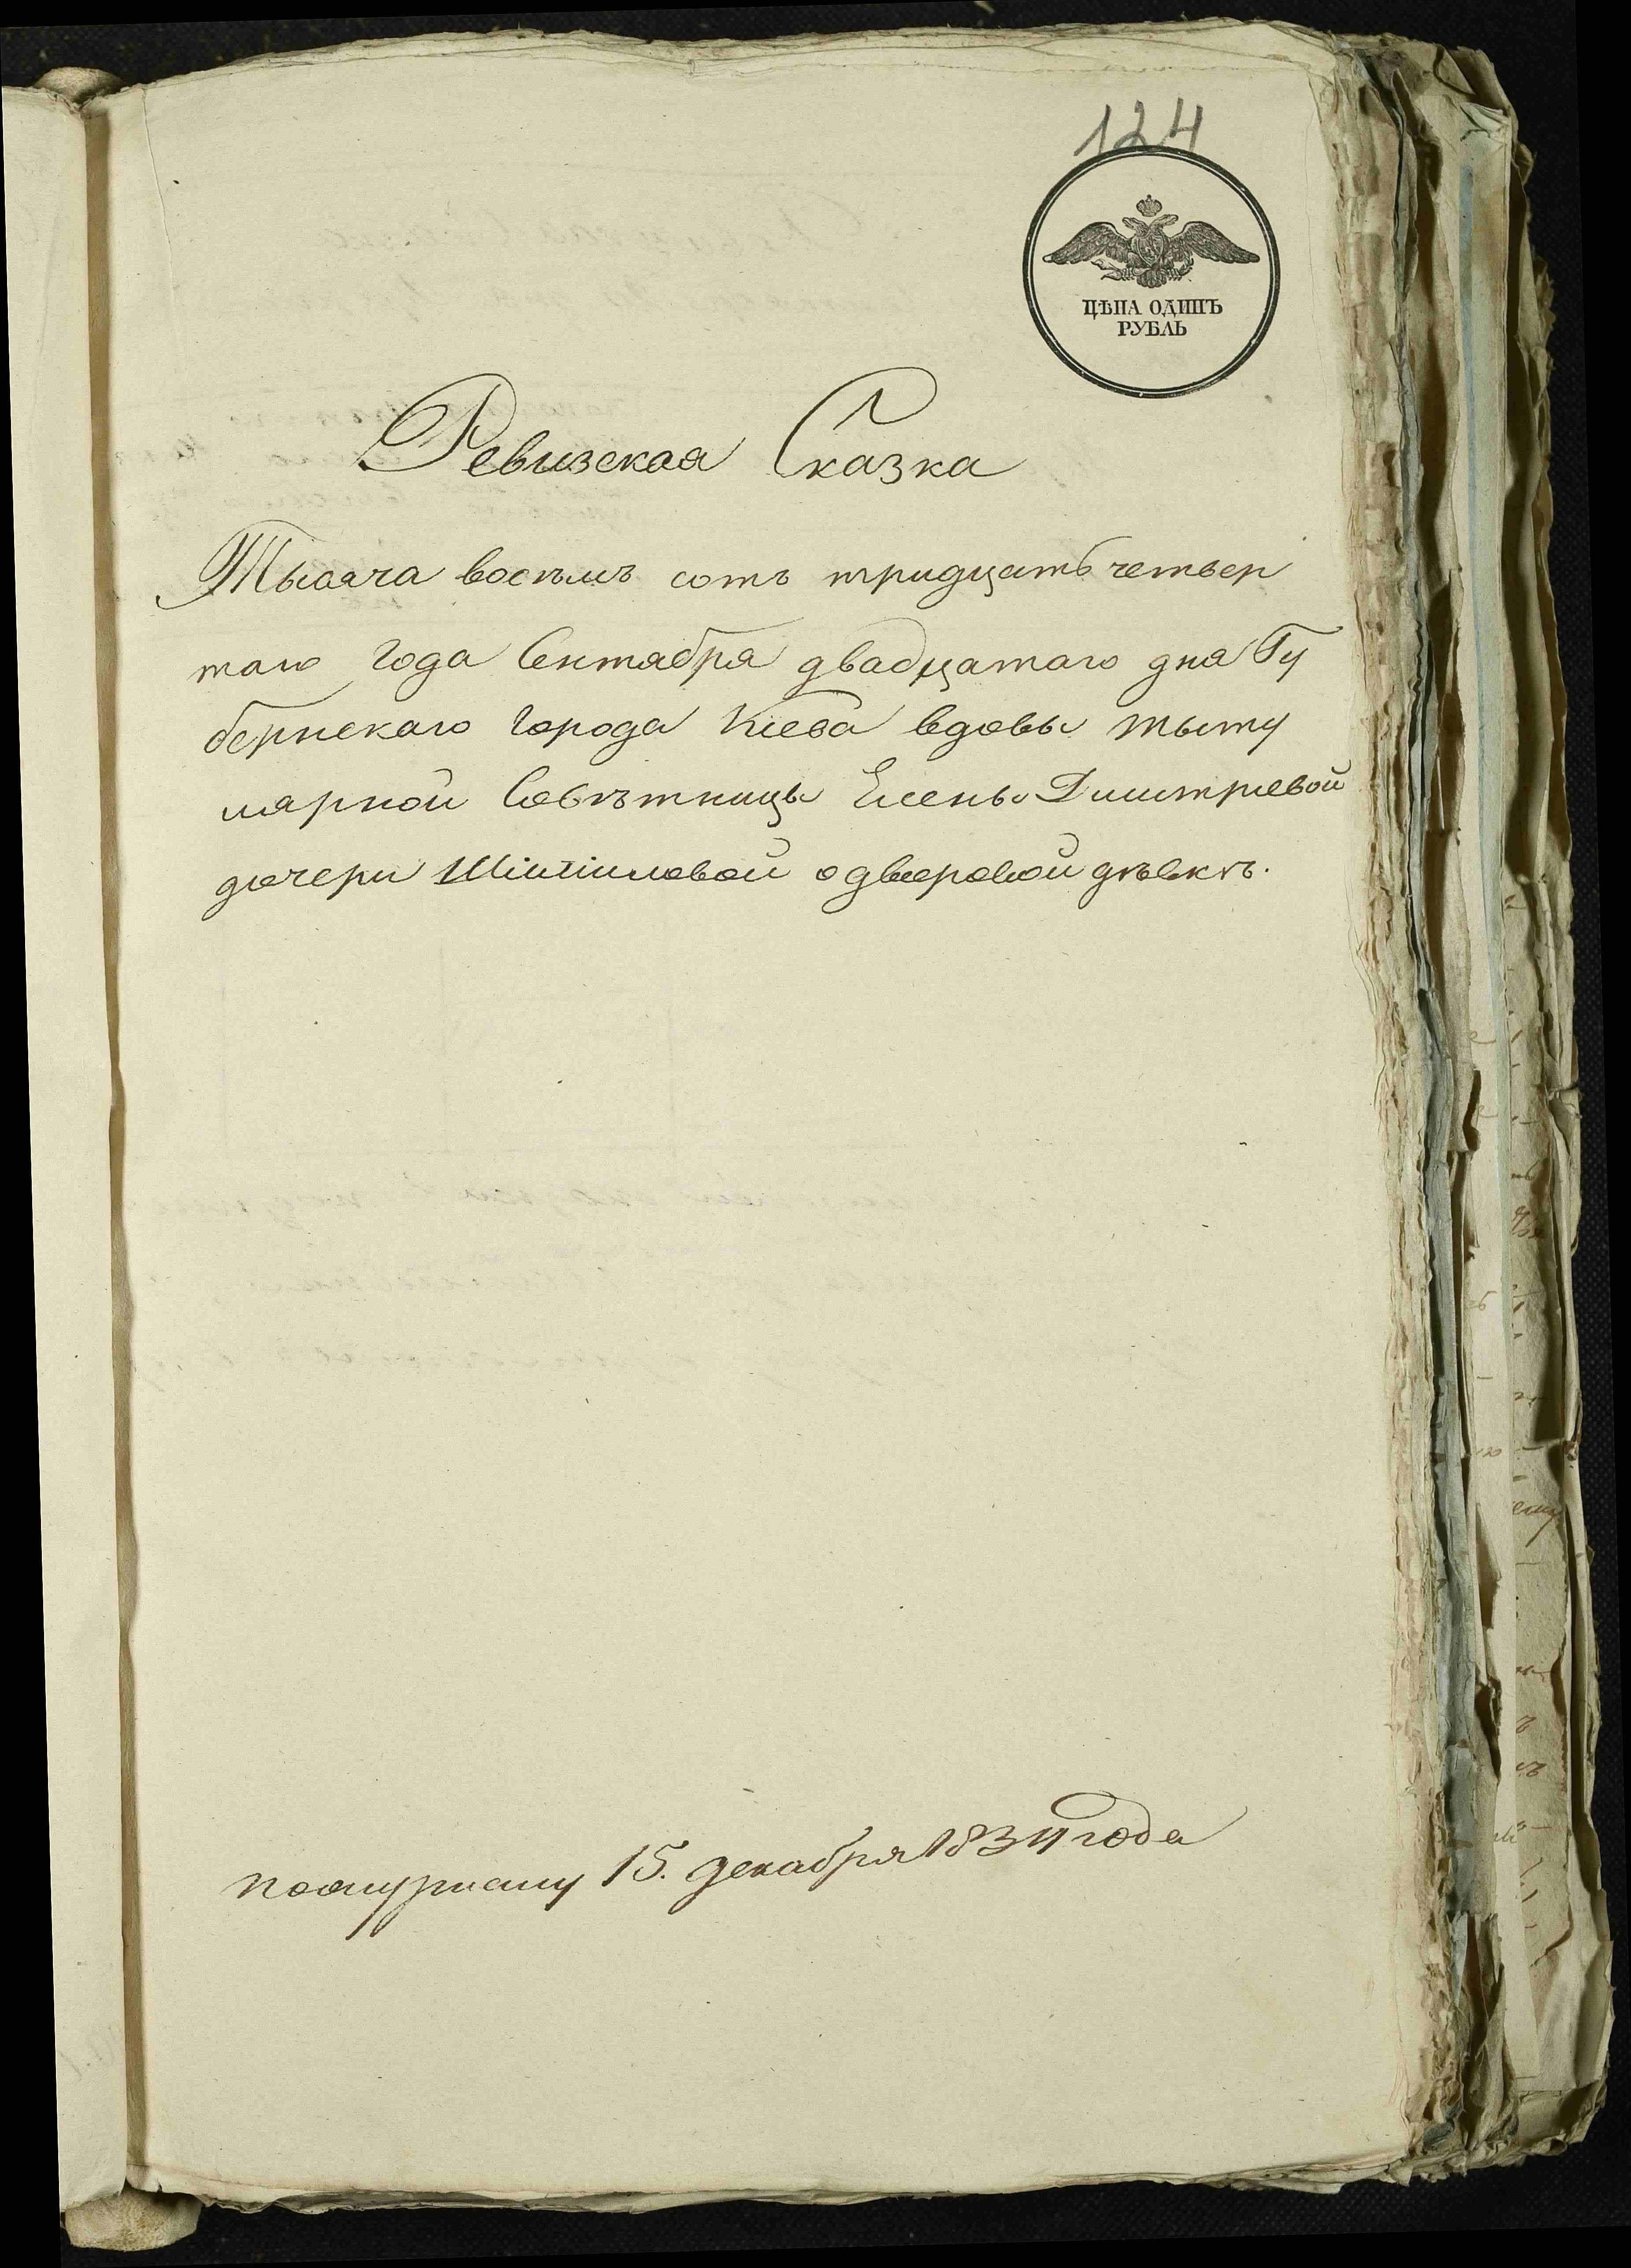 124
ЦѢНА ОДИНЪ
РУБЛЬ
Ревизская Сказка
Тысяча восѣмъ сотъ тридцать четвер
таго года Сентября двадцатаго дня Гу
бернскаго города Кіева вдовы тыту
лярной Совѣтницы Елены Димтріевой
дочери одворовой дѣвкѣ.
15. декабря 1834 года